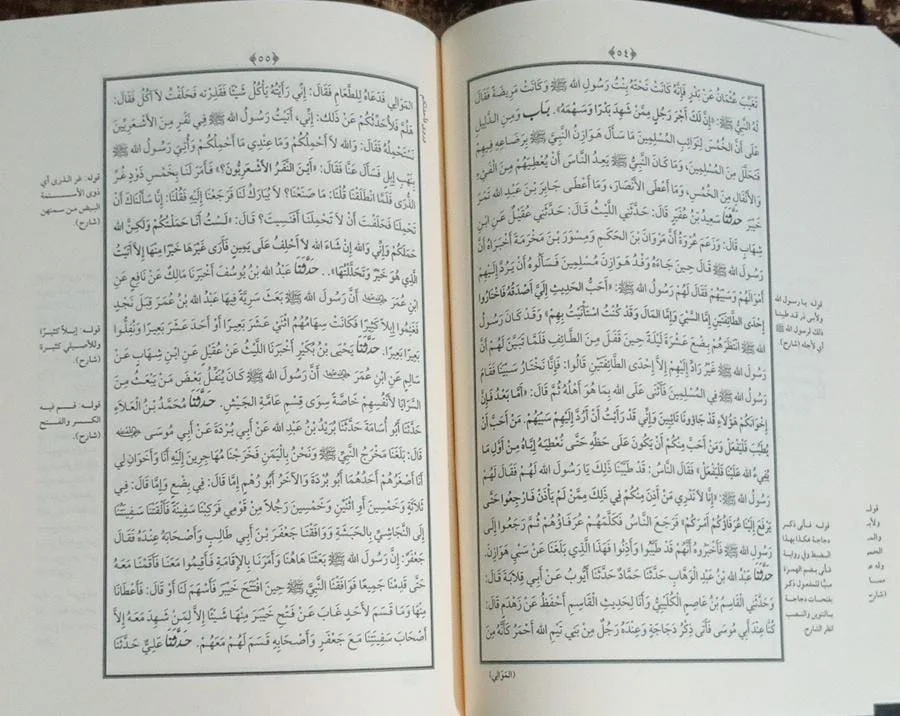 ﴿٥٤﴾
تَغَيَّبَ عُثْمَانُ عَنْ بَدْرٍ فَإِنَّهُ كَانَتْ تَحْتَهُ بِنْتُ رَسُولِ اللهِ ﷺ وَكَانَتْ مَرِيضَةً فَقَالَ
لَهُ النَّبِيُّ ﷺ: «إِنَّ لَكَ أَجْرَ رَجُلٍ مِمَّنْ شَهِدَ بَدْرًا وَسَهْمَهُ». بَاب وَمِنَ الدَّلِيلِ
عَلَى أَنَّ الْخُمُسَ لِنَوَائِبِ الْمُسْلِمِينَ مَا سَأَلَ هَوَازِنُ النَّبِيَّ ﷺ بِرَضَاعِهِ فِيهِمْ
فَتَحَلَّلَ مِنَ الْمُسْلِمِينَ، وَمَا كَانَ النَّبِيُّ ﷺ يَعِدُ النَّاسَ أَنْ يُعْطِيَهُمْ مِنَ الْفَيْءِ
وَالْأَنْفَالِ مِنَ الْخُمُسِ، وَمَا أَعْطَى الْأَنْصَارَ، وَمَا أَعْطَى جَابِرَ بْنَ عَبْدِ اللهِ تَمْرَ
خَيْبَرَ حَدَّثَنَا سَعِيدُ بْنُ عُفَيْرٍ قَالَ: حَدَّثَنِي اللَّيْثُ قَالَ: حَدَّثَنِي عُقَيْلٌ عَنِ ابْنِ
شِهَابٍ قَالَ: وَزَعَمَ عُرْوَةُ أَنَّ مَرْوَانَ بْنَ الْحَكَمِ وَمِسْوَرَ بْنَ مَخْرَمَةَ أَخْبَرَاهُ أَنَّ
رَسُولَ اللهِ ﷺ قَالَ حِينَ جَاءَهُ وَفْدُ هَوَازِنَ مُسْلِمِينَ فَسَأَلُوهُ أَنْ يَرُدَّ إِلَيْهِمْ
أَمْوَالَهُمْ وَسَبْيَهُمْ فَقَالَ لَهُمْ رَسُولُ اللهِ ﷺ: «أَحَبُّ الْحَدِيثِ إِلَيَّ أَصْدَقُهُ فَاخْتَارُوا
إِحْدَى الطَّائِفَتَيْنِ إِمَّا السَّبْيَ وَإِمَّا الْمَالَ وَقَدْ كُنْتُ اسْتَأْنَيْتُ بِهِمْ» وَقَدْ كَانَ رَسُولُ
اللهِ ﷺ انْتَظَرَهُمْ بِضْعَ عَشْرَةَ لَيْلَةً حِينَ قَفَلَ مِنَ الطَّائِفِ فَلَمَّا تَبَيَّنَ لَهُمْ أَنَّ
رَسُولَ اللهِ ﷺ غَيْرُ رَادٍّ إِلَيْهِمْ إِلَّا إِحْدَى الطَّائِفَتَيْنِ قَالُوا: فَإِنَّا نَخْتَارُ سَبْيَنَا فَقَامَ
رَسُولُ اللهِ ﷺ فِي الْمُسْلِمِينَ فَأَثْنَى عَلَى اللهِ بِمَا هُوَ أَهْلُهُ ثُمَّ قَالَ: «أَمَّا بَعْدُ فَإِنَّ
إِخْوَانَكُمْ هَؤُلَاءِ قَدْ جَاؤُونَا تَائِبِينَ وَإِنِّي قَدْ رَأَيْتُ أَنْ أَرُدَّ إِلَيْهِمْ سَبْيَهُمْ. مَنْ أَحَبَّ أَنْ
يُطَيِّبَ فَلْيَفْعَلْ وَمَنْ أَحَبَّ مِنْكُمْ أَنْ يَكُونَ عَلَى حَظِّهِ حَتَّى نُعْطِيَهُ إِيَّاهُ مِنْ أَوَّلِ مَا
يُفِيءُ اللهُ عَلَيْنَا فَلْيَفْعَلْ» فَقَالَ النَّاسُ: قَدْ طَيَّبْنَا ذَلِكَ يَا رَسُولَ اللهِ لَهُمْ فَقَالَ لَهُمْ
رَسُولُ اللهِ ﷺ: «إِنَّا لَا نَدْرِي مَنْ أَذِنَ مِنْكُمْ فِي ذَلِكَ مِمَّنْ لَمْ يَأْذَنْ فَارْجِعُوا حَتَّى
يَرْفَعَ إِلَيْنَا عُرَفَاؤُكُمْ أَمْرَكُمْ» فَرَجَعَ النَّاسُ فَكَلَّمَهُمْ عُرَفَاؤُهُمْ ثُمَّ رَجَعُوا إِلَى
رَسُولِ اللهِ ﷺ فَأَخْبَرُوهُ أَنَّهُمْ قَدْ طَيَّبُوا وَأَذِنُوا فَهَذَا الَّذِي بَلَغَنَا عَنْ سَبْيِ هَوَازِنَ.
حَدَّثَنَا عَبْدُ اللهِ بْنُ عَبْدِ الْوَهَّابِ حَدَّثَنَا حَمَّادٌ حَدَّثَنَا أَيُّوبُ عَنْ أَبِي قِلَابَةَ قَالَ:
وَحَدَّثَنِي الْقَاسِمُ بْنُ عَاصِمٍ الْكُلَيْبِيُّ وَأَنَا لِحَدِيثِ الْقَاسِمِ أَحْفَظُ عَنْ زَهْدَمٍ قَالَ:
كُنَّا عِنْدَ أَبِي مُوسَى فَأَتَى ذِكْرُ دَجَاجَةٍ وَعِنْدَهُ رَجُلٌ مِنْ بَنِي تَيْمِ اللهِ أَحْمَرُ كَأَنَّهُ مِنَ
(الْمَوَالِي)
قوله يا رسول الله
ذلك لرسول الله ﷺ
أي لأجله (شارح)
قوله فأتى ذكر
دجاجة هكذا بهذا
الضبط وفي رواية
فأتي بضم الهمزة
مبنيًّا للمفعول ذكر
بفتحات دجاجة
بالتنوين والنصب
انظر الشارح.
﴿٥٥﴾
الْمَوَالِي فَدَعَاهُ لِلطَّعَامِ فَقَالَ: إِنِّي رَأَيْتُهُ يَأْكُلُ شَيْئًا فَقَذِرْتُهُ فَحَلَفْتُ لَا آكُلُ فَقَالَ:
هَلُمَّ فَلْأُحَدِّثْكُمْ عَنْ ذَلِكَ: إِنِّي، أَتَيْتُ رَسُولَ اللهِ ﷺ فِي نَفَرٍ مِنَ الْأَشْعَرِيِّينَ
نَسْتَحْمِلُهُ فَقَالَ: وَاللهِ لَا أَحْمِلُكُمْ وَمَا عِنْدِي مَا أَحْمِلُكُمْ وَأُتِيَ رَسُولُ اللهِ ﷺ
بِنَهْبِ إِبِلٍ فَسَأَلَ عَنَّا فَقَالَ: «أَيْنَ النَّفَرُ الْأَشْعَرِيُّونَ؟» فَأَمَرَ لَنَا بِخَمْسِ ذَوْدٍ غُرِّ
الذُّرَى فَلَمَّا انْطَلَقْنَا قُلْنَا: مَا صَنَعْنَا؟ لَا يُبَارَكُ لَنَا فَرَجَعْنَا إِلَيْهِ فَقُلْنَا: إِنَّا سَأَلْنَاكَ أَنْ
تَحْمِلَنَا فَحَلَفْتَ أَنْ لَا تَحْمِلَنَا أَفَنَسِيتَ؟ قَالَ: «لَسْتُ أَنَا حَمَلْتُكُمْ وَلَكِنَّ اللهَ
حَمَلَكُمْ وَإِنِّي وَاللهِ إِنْ شَاءَ اللهُ لَا أَحْلِفُ عَلَى يَمِينٍ فَأَرَى غَيْرَهَا خَيْرًا مِنْهَا إِلَّا أَتَيْتُ
الَّذِي هُوَ خَيْرٌ وَتَحَلَّلْتُهَا». حَدَّثَنَا عَبْدُ اللهِ بْنُ يُوسُفَ أَخْبَرَنَا مَالِكٌ عَنْ نَافِعٍ عَنِ
ابْنِ عُمَرَ أَنَّ رَسُولَ اللهِ ﷺ بَعَثَ سَرِيَّةً فِيهَا عَبْدُ اللهِ بْنُ عُمَرَ قِبَلَ نَجْدٍ
فَغَنِمُوا إِبِلًا كَثِيرًا فَكَانَتْ سِهَامُهُمُ اثْنَيْ عَشَرَ بَعِيرًا أَوْ أَحَدَ عَشَرَ بَعِيرًا وَنُفِّلُوا
بَعِيرًا بَعِيرًا. حَدَّثَنَا يَحْيَى بْنُ بُكَيْرٍ أَخْبَرَنَا اللَّيْثُ عَنْ عُقَيْلٍ عَنِ ابْنِ شِهَابٍ عَنْ
سَالِمٍ عَنِ ابْنِ عُمَرَ أَنَّ رَسُولَ اللهِ ﷺ كَانَ يُنَفِّلُ بَعْضَ مَنْ يَبْعَثُ مِنَ
السَّرَايَا لِأَنْفُسِهِمْ خَاصَّةً سِوَى قِسْمِ عَامَّةِ الْجَيْشِ. حَدَّثَنَا مُحَمَّدُ بْنُ الْعَلَاءِ
حَدَّثَنَا أَبُو أُسَامَةَ حَدَّثَنَا بُرَيْدُ بْنُ عَبْدِ اللهِ عَنْ أَبِي بُرْدَةَ عَنْ أَبِي مُوسَى
قَالَ: بَلَغَنَا مَخْرَجُ النَّبِيِّ ﷺ وَنَحْنُ بِالْيَمَنِ فَخَرَجْنَا مُهَاجِرِينَ إِلَيْهِ أَنَا وَأَخَوَانِ لِي
أَنَا أَصْغَرُهُمْ أَحَدُهُمَا أَبُو بُرْدَةَ وَالْآخَرُ أَبُو رُهْمٍ إِمَّا قَالَ: فِي بِضْعٍ وَإِمَّا قَالَ: فِي
ثَلَاثَةٍ وَخَمْسِينَ أَوِ اثْنَيْنِ وَخَمْسِينَ رَجُلًا مِنْ قَوْمِي فَرَكِبْنَا سَفِينَةً فَأَلْقَتْنَا سَفِينَتُنَا
إِلَى النَّجَاشِيِّ بِالْحَبَشَةِ وَوَافَقْنَا جَعْفَرَ بْنَ أَبِي طَالِبٍ وَأَصْحَابَهُ عِنْدَهُ فَقَالَ
جَعْفَرٌ: إِنَّ رَسُولَ اللهِ ﷺ بَعَثَنَا هَاهُنَا وَأَمَرَنَا بِالْإِقَامَةِ فَأَقِيمُوا مَعَنَا فَأَقَمْنَا مَعَهُ
حَتَّى قَدِمْنَا جَمِيعًا فَوَافَقْنَا النَّبِيَّ ﷺ حِينَ افْتَتَحَ خَيْبَرَ فَأَسْهَمَ لَنَا أَوْ قَالَ: فَأَعْطَانَا
مِنْهَا وَمَا قَسَمَ لِأَحَدٍ غَابَ عَنْ فَتْحِ خَيْبَرَ مِنْهَا شَيْئًا إِلَّا لِمَنْ شَهِدَ مَعَهُ إِلَّا
أَصْحَابَ سَفِينَتِنَا مَعَ جَعْفَرٍ وَأَصْحَابِهِ قَسَمَ لَهُمْ مَعَهُمْ. حَدَّثَنَا عَلِيٌّ حَدَّثَنَا
قوله: غر الذرى أي
ذوي الأسنمة
البيض من سمنهن
(شارح)
قوله: إبلا كثيرًا
وللأصيلي كثيرة
(شارح).
قوله: قسم فيه
الكسر والفتح
(شارح).